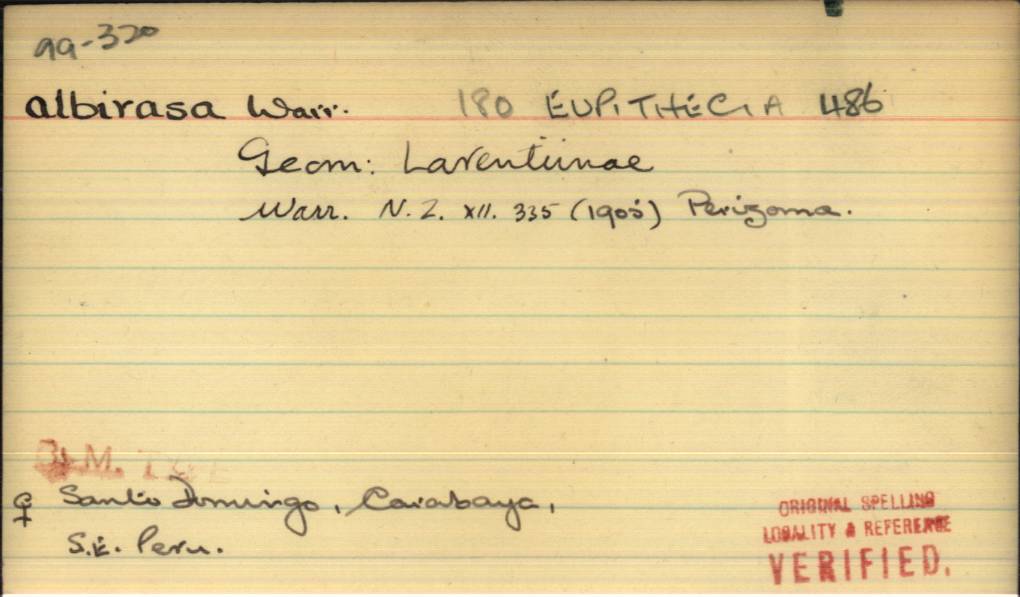 99-320
albirasa Warr. 180 EUPITHECIA 486
Geom: Larentiinae
Warr. N. Z. XII. 335 (1905) Perizoma.
B.M. TYPE
♀ Santo Domingo, Carabaya,
S.E. Peru.
ORIGINAL SPELLING
LOCALITY & REFERENCE
VERIFIED.